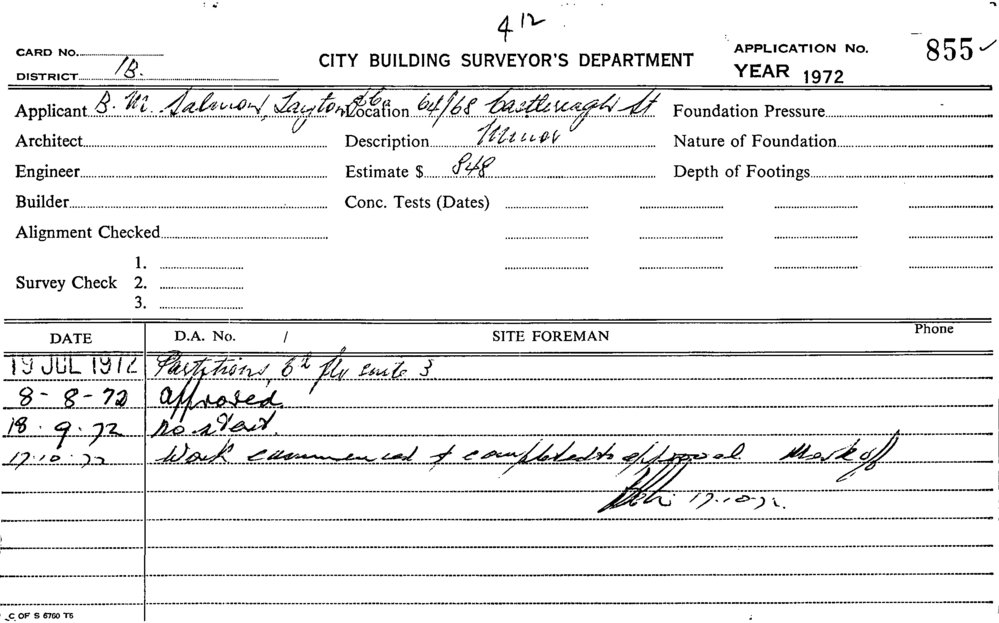 4 12
CARD NO.
DISTRICT 1B.
CITY BUILDING SURVEYOR'S DEPARTMENT
APPLICATION NO. 855
YEAR 1972
Applicant B. M. Salmon, Layton & Co Location 64/68 Castlereagh St Foundation Pressure
Architect Description Minor Nature of Foundation
Engineer Estimate $ 848 Depth of Footings
Builder Conc. Tests (Dates)
Alignment Checked
Survey Check 1.
2.
3.
DATE D.A. No. / SITE FOREMAN Phone
19 JUL 1972 Partitions, 6th flr suite 3
8-8-72 approved.
18.9.72 no start.
17.10.72 Work commenced & completed to approval Mark off
17.10.72.
C OF S 6760 T5